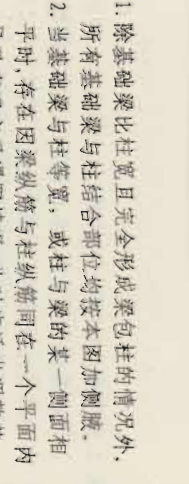 1. 除基础梁比柱宽且完全形成梁包柱的情况外，
所有基础梁与柱结合部位均按本图加侧腋。
2. 当基础梁与柱等宽，或柱与梁的某一侧面相
平时，存在因梁纵筋与柱纵筋同在一个平面内